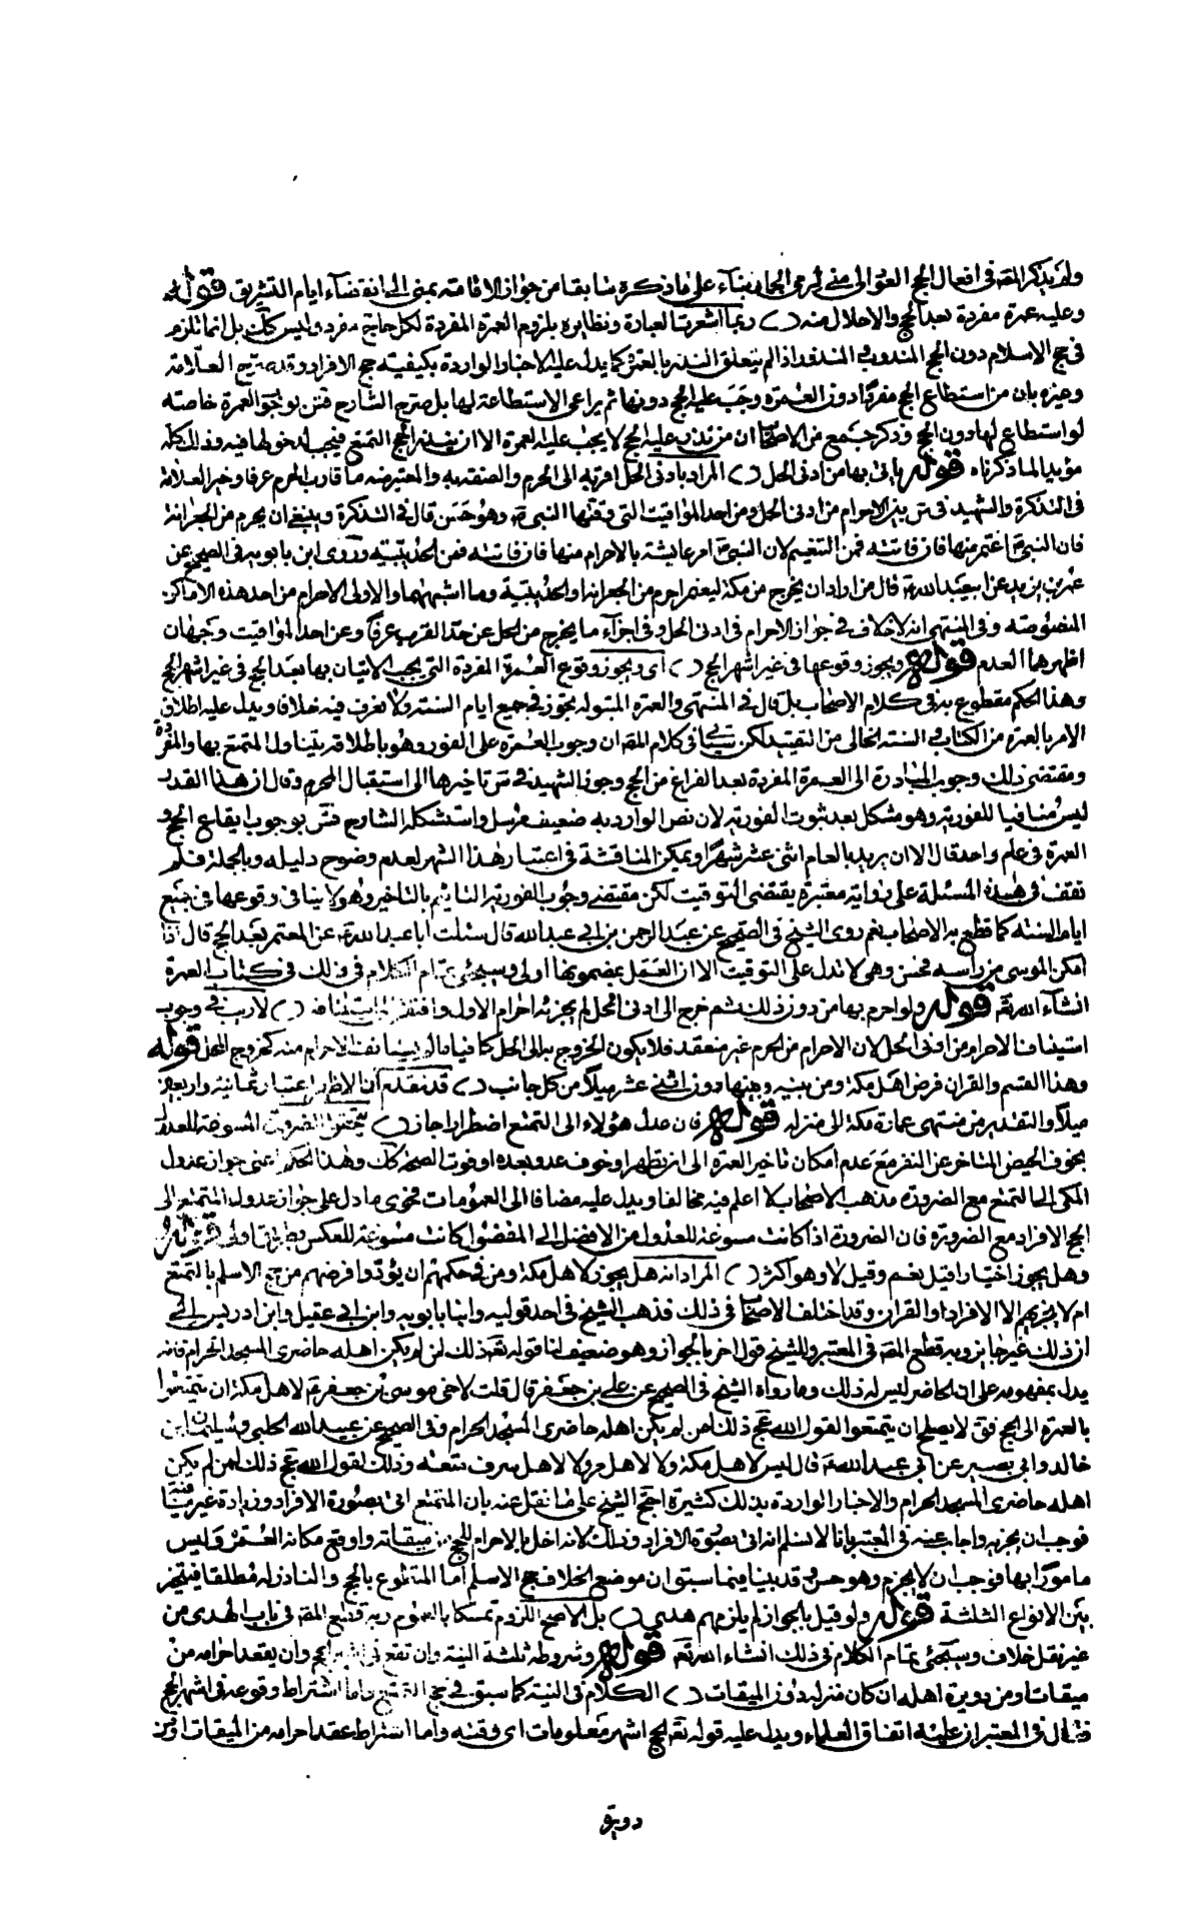 ولم يذكر المص في افعال الحج العود الى منى لرمي الجمار بناء على ما ذكره سابقا من جواز الاقامة بمنى الى انقضاء ايام التشريق قوله
وعليه عمرة مفردة بعد الحج والاحلال منه ( ) ربما اشعرت العبارة ونظايره بلزوم العمرة المفردة لكل حاج مفرد وليس كك بل انما تلزم
في حج الاسلام دون الحج المندوب والمنذور اذا لم يتعلق النذر بالعمرة كما يدل عليه الاخبار الواردة بكيفية حج الافراد وقد صرح العلامة
وغيره بان من استطاع الحج مفردا دون العمرة وجب عليه الحج دونها ثم يراعي الاستطاعة لها بل صرح الشارح قدس بوجوب العمرة خاصة
لو استطاع لها دون الحج وذكر جمع من الاصحاب ان من نذر عليه الحج لا يجب عليه العمرة الا ان ينذر حج التمتع فيجب لدخولها فيه وذلك كله
مؤيد لما ذكرناه قوله ياتي بها من ادنى الحل ( ) المراد بادنى الحل اقربه الى الحرم والصقه به والمعتبر منه ما قارب الحرم عرفا وخير العلامة
في التذكرة والشهيد في س بين الاحرام من ادنى الحل ومن احد المواقيت التي وقتها النبي ص وهو حسن قال في التذكرة وينبغي ان يحرم من الجعرانة
فان النبي ص اعتمر منها فان فاتته فمن التنعيم لان النبي ص امر عايشة بالاحرام منها فان فاتته فمن الحديبية وروى ابن بابويه في الصحيح عن
عمر بن يزيد عن ابيعبدالله ع قال من اراد ان يخرج من مكة ليعتمر احرم من الجعرانة او الحديبية وما اشبههما والاولى الاحرام من احد هذه الاماكن
المنصوصة وفي المنتهى انه لا خلاف في جواز الاحرام في ادنى الحل وفي اجزاء ما يخرج من الحل عن حد القرب عرفا وعن احد المواقيت وجهان
اظهرهما العدم قوله ويجوز وقوعها في غير اشهر الحج ( ) اى ويجوز وقوع العمرة المفردة التي يجب الاتيان بها بعد الحج في غير اشهر الحج
وهذا الحكم مقطوع به في كلام الاصحاب بل قال في المنتهى والعمرة المبتولة يجوز في جميع ايام السنة ولا نعرف فيه خلافا ويدل عليه اطلاق
الامر بالعمرة من الكتاب والسنة الخالي من التقييد لكن سياتي في كلام المص ان وجوب العمرة على الفور وهو باطلاقه يتناول المتمتع بها والمفردة
ومقتضى ذلك وجوب المبادرة الى العمرة المفردة بعد الفراغ من الحج وجوز الشهيد في س تاخيرها الى استقبال المحرم وقال ان هذا القدر
ليس منافيا للفورية وهو مشكل بعد ثبوت الفورية لان نص الوارد به ضعيف مرسل واستشكله الشارح قدس بوجوب ايقاع الحج و
العمرة في عام واحد قال الا ان يريد بالعام اثني عشر شهرا ويمكن المناقشة في اعتبار هذا الشهر لعدم وضوح دليله وبالجملة فلم
نقف في هذه المسئلة على رواية معتبرة يقتضى التوقيت لكن مقتضى وجوب الفورية التاثيم بالتاخير وهو لا ينافي وقوعها في جميع
ايام السنة كما قطع به الاصحاب نعم روى الشيخ في الصحيح عن عبد الرحمن بن ابي عبدالله قال سئلت ابا عبدالله ع عن المعتمر بعد الحج قال اذا
امكن الموسى من راسه فحسن وهى لا تدل على التوقيت الا ان العمل بمضمونها اولى وسيجئ تمام الكلام في ذلك في كتاب العمرة
انشاء الله تعم قوله ولو احرم بها من دون ذلك ثم خرج الى ادنى الحل لم يجزئه الاحرام الاول وافتقر الى استينافه ( ) لا ريب في وجوب
استيناف الاحرام من ادنى الحل لان الاحرام من الحرم غير منعقد فلا يكون الخروج به الى الحل كافيا ما لم يستانف الاحرام منه كخروج المحل قوله
وهذا القسم والقران فرض اهل مكة ومن بينه وبينها دون اثنى عشر ميلا من كل جانب ( ) قد تقدم ان الاظهر اعتبار ثمانية واربعين
ميلا والتقدير من منتهى عمارة مكة الى منزله قوله فان عدل هؤلاء الى التمتع اضطرارا جاز ( ) يتحقق الضرورة المسوغة للعدول
بخوف الحيض المتاخر عن النفر مع عدم امكان تاخير العمرة الى ان تطهر او خوف عدو بعده او فوت الصحبة كك وهذا الحكم اعني جواز عدول
المكي الى التمتع مع الضرورة مذهب الاصحاب لا اعلم فيه مخالفا ويدل عليه مضافا الى العمومات فحوى ما دل على جواز عدول المتمتع الى
الحج الافراد مع الضرورة فان الضرورة اذا كانت مسوغة للعدول من الافضل الى المفضول كانت مسوغة للعكس بطريق اولى قوله
وهل يجوز اختيارا قيل نعم وقيل لا وهو اكثر ( ) المراد انه هل يجوز لاهل مكة ومن في حكمهم ان يؤدوا فرضهم من حج الاسلم بالتمتع
ام لا يجزيهم الا الافراد او القران وقد اختلف الاصحاب في ذلك فذهب الشيخ في احد قوليه وابنا بابويه وابن ابي عقيل وابن ادريس الى
ان ذلك غير جايز وبه قطع المص في المعتبر وللشيخ قول اخر بالجواز وهو ضعيف لنا قوله تعم ذلك لمن لم يكن اهله حاضرى المسجد الحرام فانه
يدل بمفهومه على ان الحاضر ليس له ذلك وما رواه الشيخ في الصحيح عن علي بن جعفر قال قلت لاخي موسى بن جعفر ع لاهل مكة ان يتمتعوا
بالعمرة الى الحج فق لا يصلح ان يتمتعوا لقول الله عج ذلك لمن لم يكن اهله حاضرى المسجد الحرام وفي الصحيح عن عبيدالله الحلبي وسليمان بن
خالد وابي بصير عن ابي عبدالله ع قال ليس لاهل مكة ولا لاهل مر ولا لاهل سرف متعة وذلك لقول الله عج ذلك لمن لم يكن
اهله حاضرى المسجد الحرام والاخبار الواردة بذلك كثيرة احتج الشيخ على ما نقل عنه بان المتمتع اتى بصورة الافراد وزيادة غير منافية
فوجب ان يجزيه واجاب عنه في المعتبر بانا لا نسلم انه اتى بصورة الافراد وذلك لانه اخل بالاحرام للحج من ميقاته واوقع مكانه العمرة وليس
مامورا بها فوجب ان لا يجزم وهو حسن وقد بينا فيما سبق ان موضع الخلاف حج الاسلم اما المتطوع بالحج والناذر له مطلقا فيتخير
بين الانواع الثلثة قوله ولو قيل بالجواز لم يلزمهم هدى ( ) بل الاصح اللزوم تمسكا بالعموم وبه قطع المص في باب الهدى من
غير نقل خلاف وسيجئ تمام الكلام في ذلك انشاء الله تعم قوله وشروطه ثلثة النية وان تقع في اشهر الحج وان يعقد احرامه من
ميقات او من دويرة اهله ان كان منزله دون الميقات ( ) الكلام في النية كما سبق في حج التمتع واما اشتراط وقوعه في اشهر الحج
فقال في المعتبر ان عليه اتفاق العلماء ويدل عليه قوله تعم الحج اشهر معلومات اى وقته واما اشتراط عقد احرامه من الميقات او من
دويرة